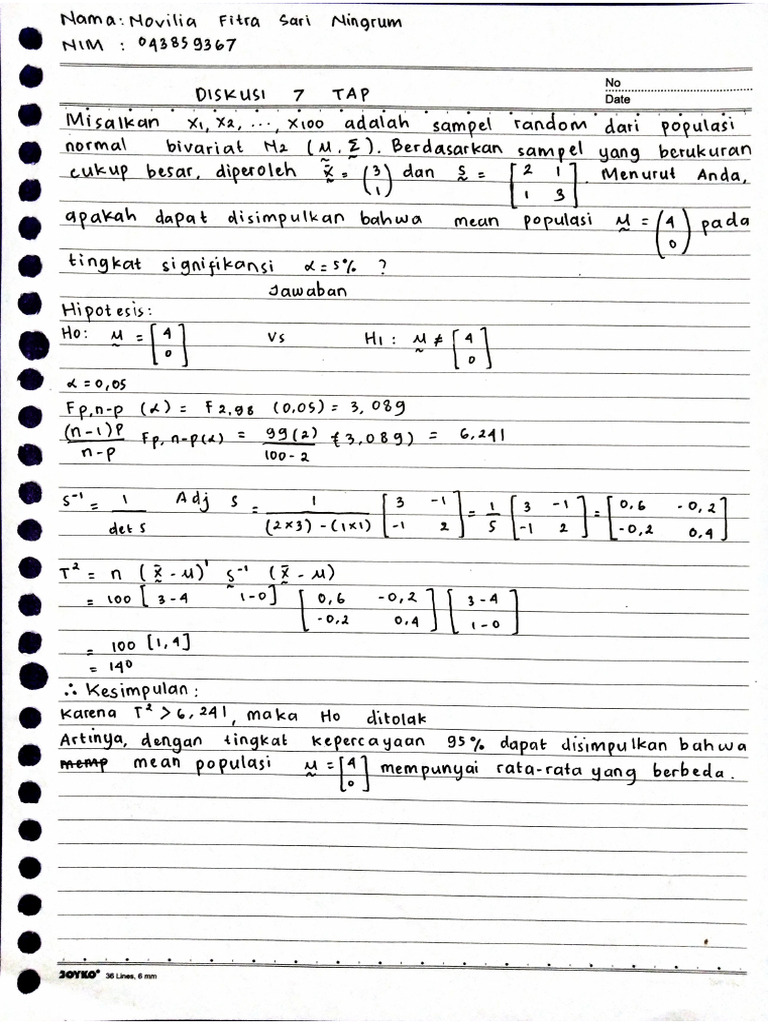 Nama: Novilia Fitra Sari Ningrum
NIM : 043859367
No
Date
DISKUSI 7 TAP
Misalkan X1, X2, ..., X100 adalah sampel random dari populasi
normal bivariat N2 (μ, Σ). Berdasarkan sampel yang berukuran
cukup besar, diperoleh x̄ = (3 1) dan S = [2 1 1 3]. Menurut Anda,
apakah dapat disimpulkan bahwa mean populasi μ = (4 0) pada
tingkat signifikansi α = 5% ?
Jawaban
Hipotesis:
H0: μ = [4 0] vs H1 : μ ≠ [4 0]
α = 0,05
Fp,n-p (α) = F2,98 (0,05) = 3,089
(n-1)P / n-p Fp, n-p(α) = 99(2) / 100-2 (3,089) = 6,241
S⁻¹ = 1 / det S Adj S = 1 / (2×3) - (1×1) [3 -1 -1 2] = 1/5 [3 -1 -1 2] = [0,6 -0,2 -0,2 0,4]
T² = n (x̄ - μ)' S⁻¹ (x̄ - μ)
= 100 [3-4 1-0] [0,6 -0,2 -0,2 0,4] [3-4 1-0]
= 100 [1,4]
= 140
∴ Kesimpulan :
Karena T² > 6,241, maka H0 ditolak
Artinya, dengan tingkat kepercayaan 95% dapat disimpulkan bahwa
memp mean populasi μ = [4 0] mempunyai rata-rata yang berbeda.
JOYKO 36 Lines, 6 mm